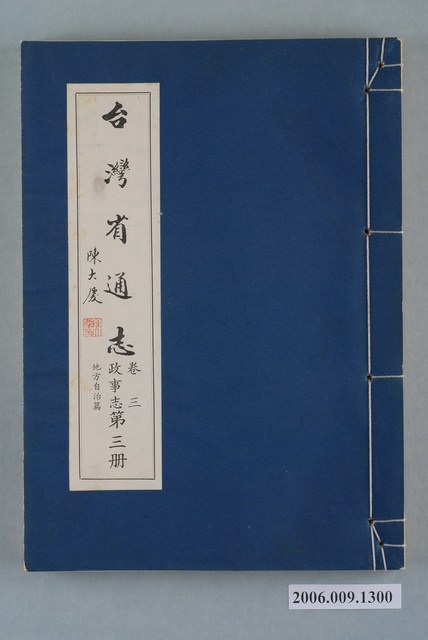 台灣省通志
卷三
政事志第三册
地方自治篇
陳大慶
2006.009.1300